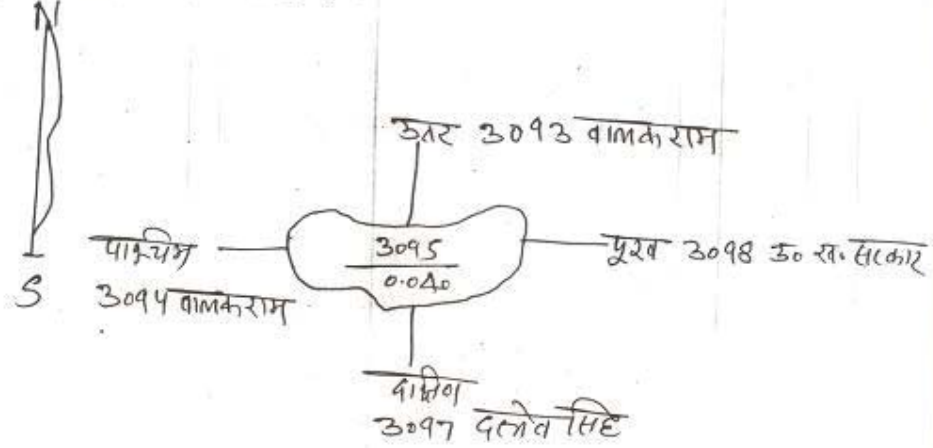 N
उत्तर 3093 बालकराम
पश्चिम
3094 बालकराम
3095
0.040
पूरब 3098 उ० ख. सरकार
S
दक्षिण
3097 सिंह